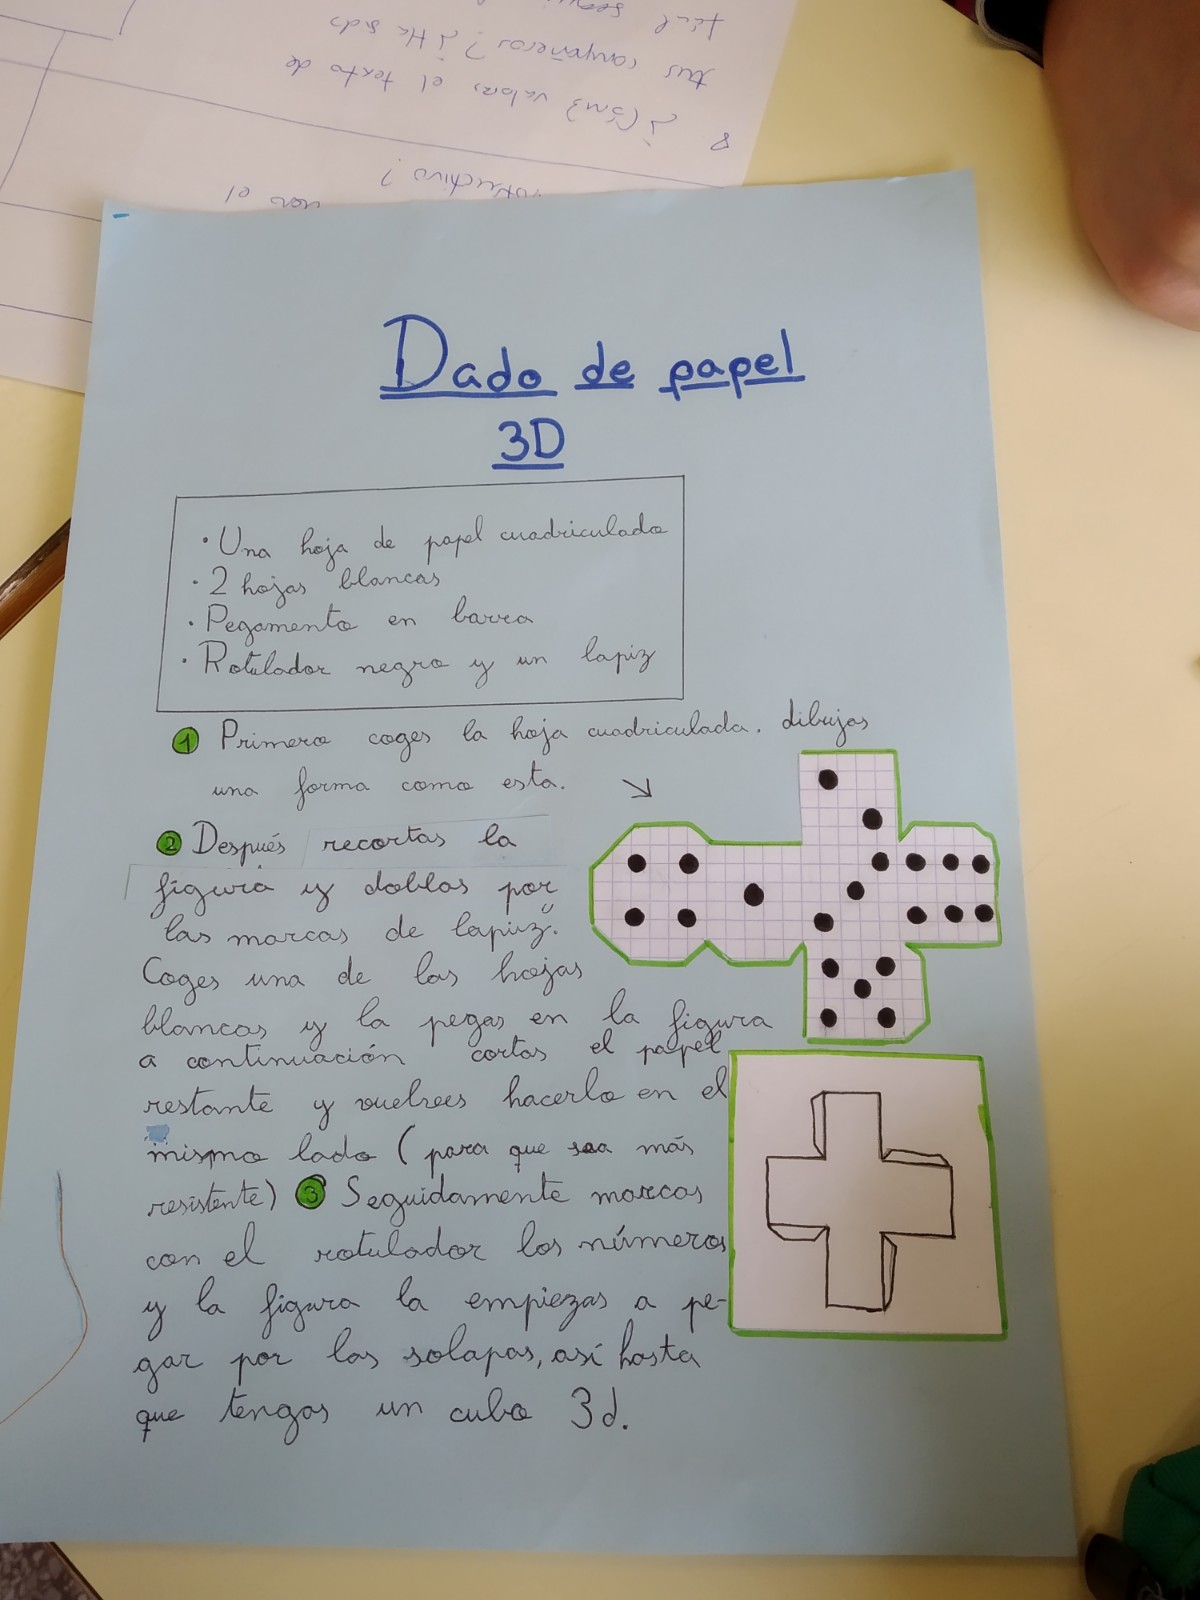 8. ¿Cómo valoras el texto de
tus compañeros? ¿Ha sido
fácil
Dado de papel
3D
· Una hoja de papel cuadriculado
· 2 hojas blancas
· Pegamento en barra
· Rotulador negro y un lapiz
1 Primero coges la hoja cuadriculada. dibujas
una forma como esta.
2 Después recortas la
figura y doblas por
las marcas de lapiz".
Coges una de las hojas
blancas y la pegas en la figura
a continuación cortas el papel
restante y vuelves hacerlo en el
mismo lado (para que sea más
resistente) 3 Seguidamente marcas
con el rotulador los números
y la figura la empiezas a pe-
gar por las solapas, así hasta
que tengas un cubo 3d.